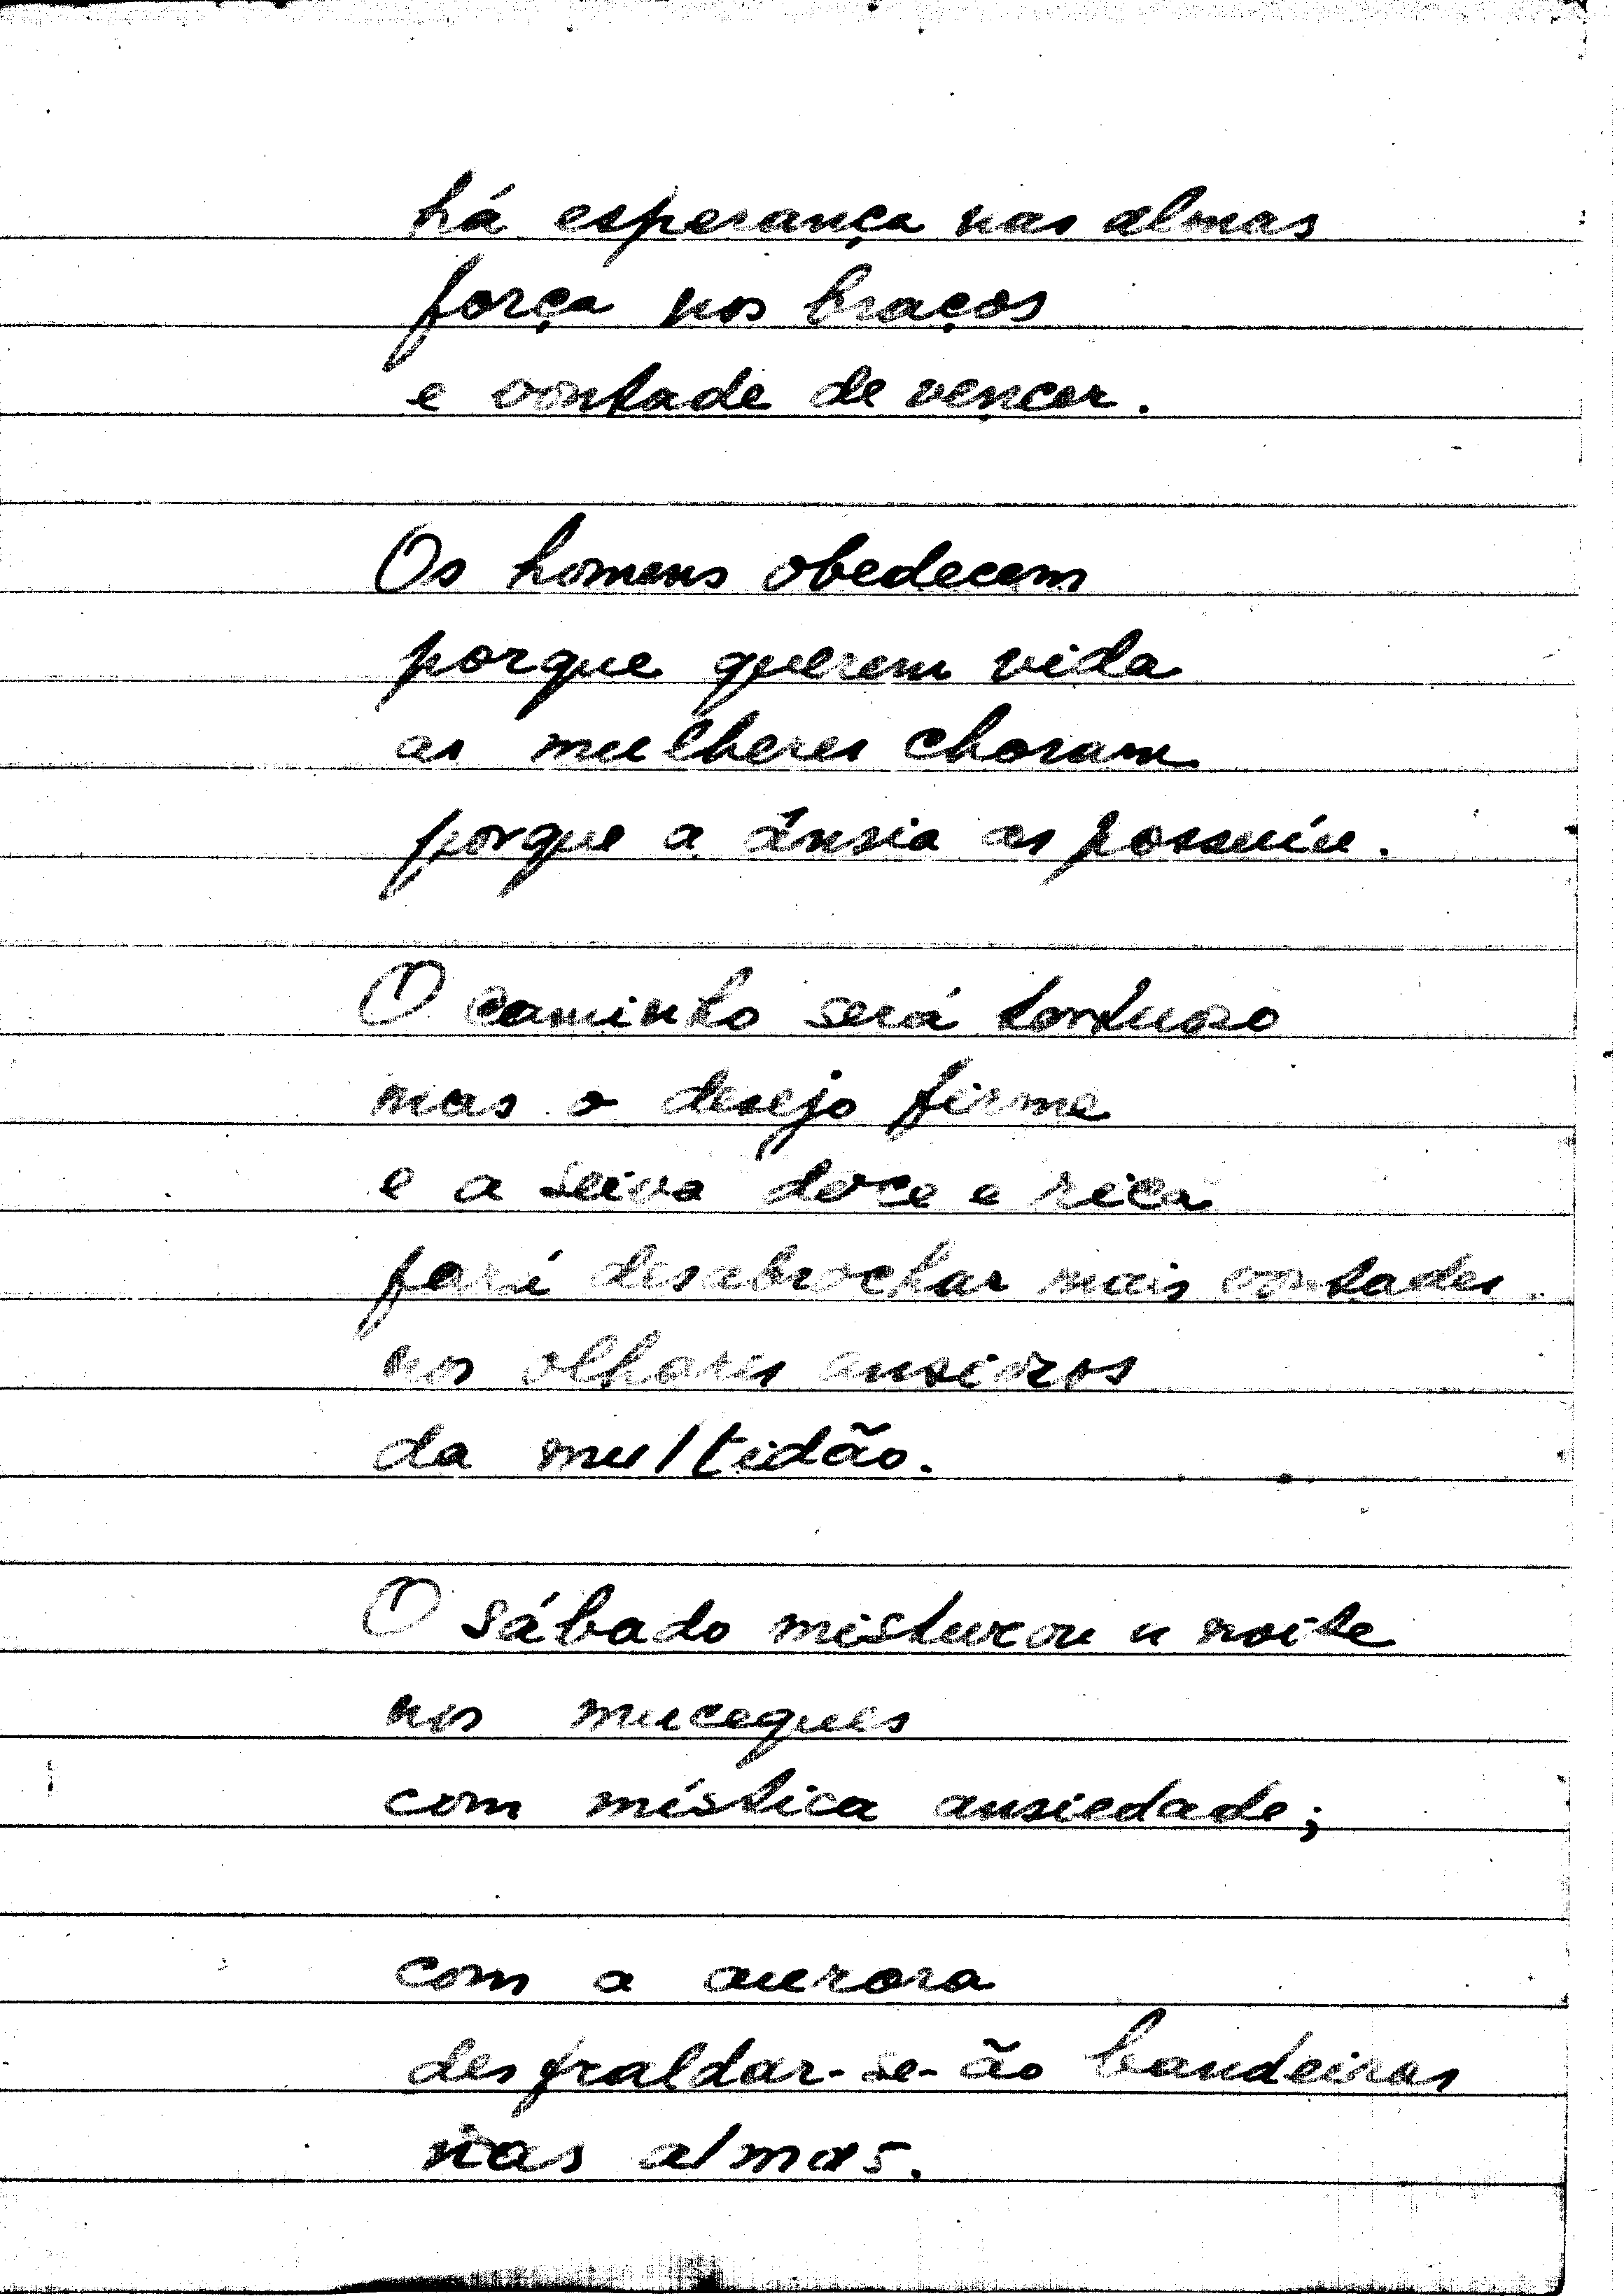 há esperança nas almas
força nos braços
e vontade de vencer.
Os homens obedecem
porque querem vida
as mulheres choram
porque a ânsia as possuíu.
O caminho será tortuoso
mas o desejo firme
e a seiva doce e rica
fará desabrochar mais vontades
nos olhares ansiosos
da multidão.
O sábado misturou a noite
nos muceques
com mística ansiedade;
com a aurora
desfraldar-se-ão bandeiras
nas almas.